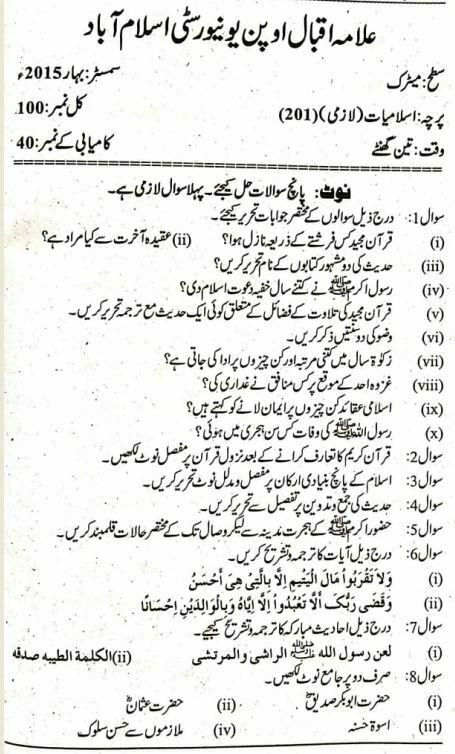 علامہ اقبال اوپن یونیورسٹی اسلام آباد
سطح: میٹرک سمسٹر: بہار 2015ء
پرچہ: اسلامیات (لازمی) (201) کل نمبر: 100
وقت: تین گھنٹے کامیابی کے نمبر: 40
نوٹ: پانچ سوالات حل کیجئے۔ پہلا سوال لازمی ہے۔
سوال 1: درج ذیل سوالوں کے مختصر جوابات تحریر کیجئے۔
(i) قرآن مجید کس فرشتے کے ذریعہ نازل ہوا؟ (ii) عقیدہ آخرت سے کیا مراد ہے؟
(iii) حدیث کی دو مشہور کتابوں کے نام تحریر کریں؟
(iv) رسول اکرم ﷺ نے کتنے سال خفیہ دعوت اسلام دی؟
(v) قرآن مجید کی تلاوت کے فضائل کے متعلق کوئی ایک حدیث مع ترجمہ تحریر کریں۔
(vi) وضو کی دو سنتیں ذکر کریں۔
(vii) زکوٰۃ سال میں کتنی مرتبہ اور کن چیزوں پر ادا کی جاتی ہے؟
(viii) غزوہ احد کے موقع پر کس منافق نے غداری کی؟
(ix) اسلامی عقائد کن چیزوں پر ایمان لانے کو کہتے ہیں؟
(x) رسول اللہ ﷺ کی وفات کس سن ہجری میں ہوئی؟
سوال 2: قرآن کریم کا تعارف کرانے کے بعد نزول قرآن پر مفصل نوٹ لکھیں۔
سوال 3: اسلام کے پانچ بنیادی ارکان پر مفصل و مدلل نوٹ تحریر کریں۔
سوال 4: حدیث کی جمع و تدوین پر تفصیل سے تحریر کریں۔
سوال 5: حضور اکرم ﷺ کے ہجرت مدینہ سے لیکر وصال تک کے مختصر حالات قلمبند کریں۔
سوال 6: درج ذیل آیات کا ترجمہ و تشریح کریں۔
(i) وَلَا تَقْرَبُوا مَالَ الْيَتِيمِ اِلَّا بِالَّتِيْ هِيَ اَحْسَنُ
(ii) وَقَضٰى رَبُّكَ اَلَّا تَعْبُدُوْا اِلَّا اِيَّاهُ وَبِالْوَالِدَيْنِ اِحْسَانًا
سوال 7: درج ذیل احادیث مبارکہ کا ترجمہ و تشریح کیجیے۔
(i) لعن رسول الله ﷺ الراشی والمرتشی (ii) الکلمة الطيبه صدقه
سوال 8: صرف دو پر جامع نوٹ لکھیں۔
(i) حضرت ابوبکر صدیقؓ (ii) حضرت عثمانؓ
(iii) اسوۃ حسنہ (iv) ملازموں سے حسن سلوک